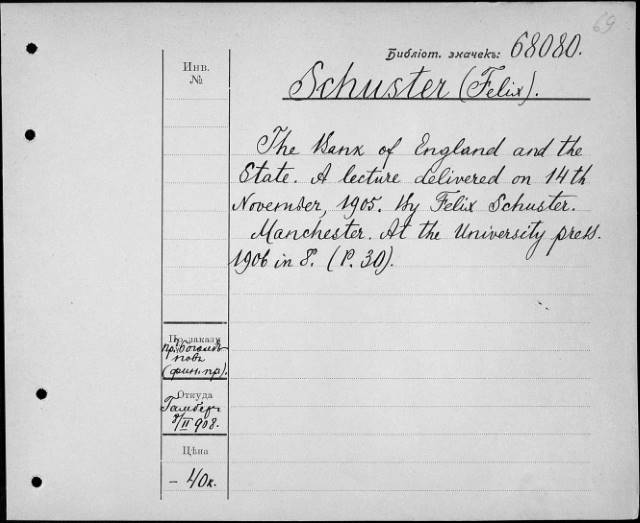 69
Библіот. значекъ: 68080.
Инв.
№
Schuster (Felix).
The Bank of England and the
State. A lecture delivered on 14th
November, 1905. By Felix Schuster.
Manchester. At the University press.
1906 in 8°. (P. 30).
По заказу
пр. Боголѣ-
повъ
(фин. пр).
Откуда
Гамбергъ
8/II 908.
Цѣна
- 40к.